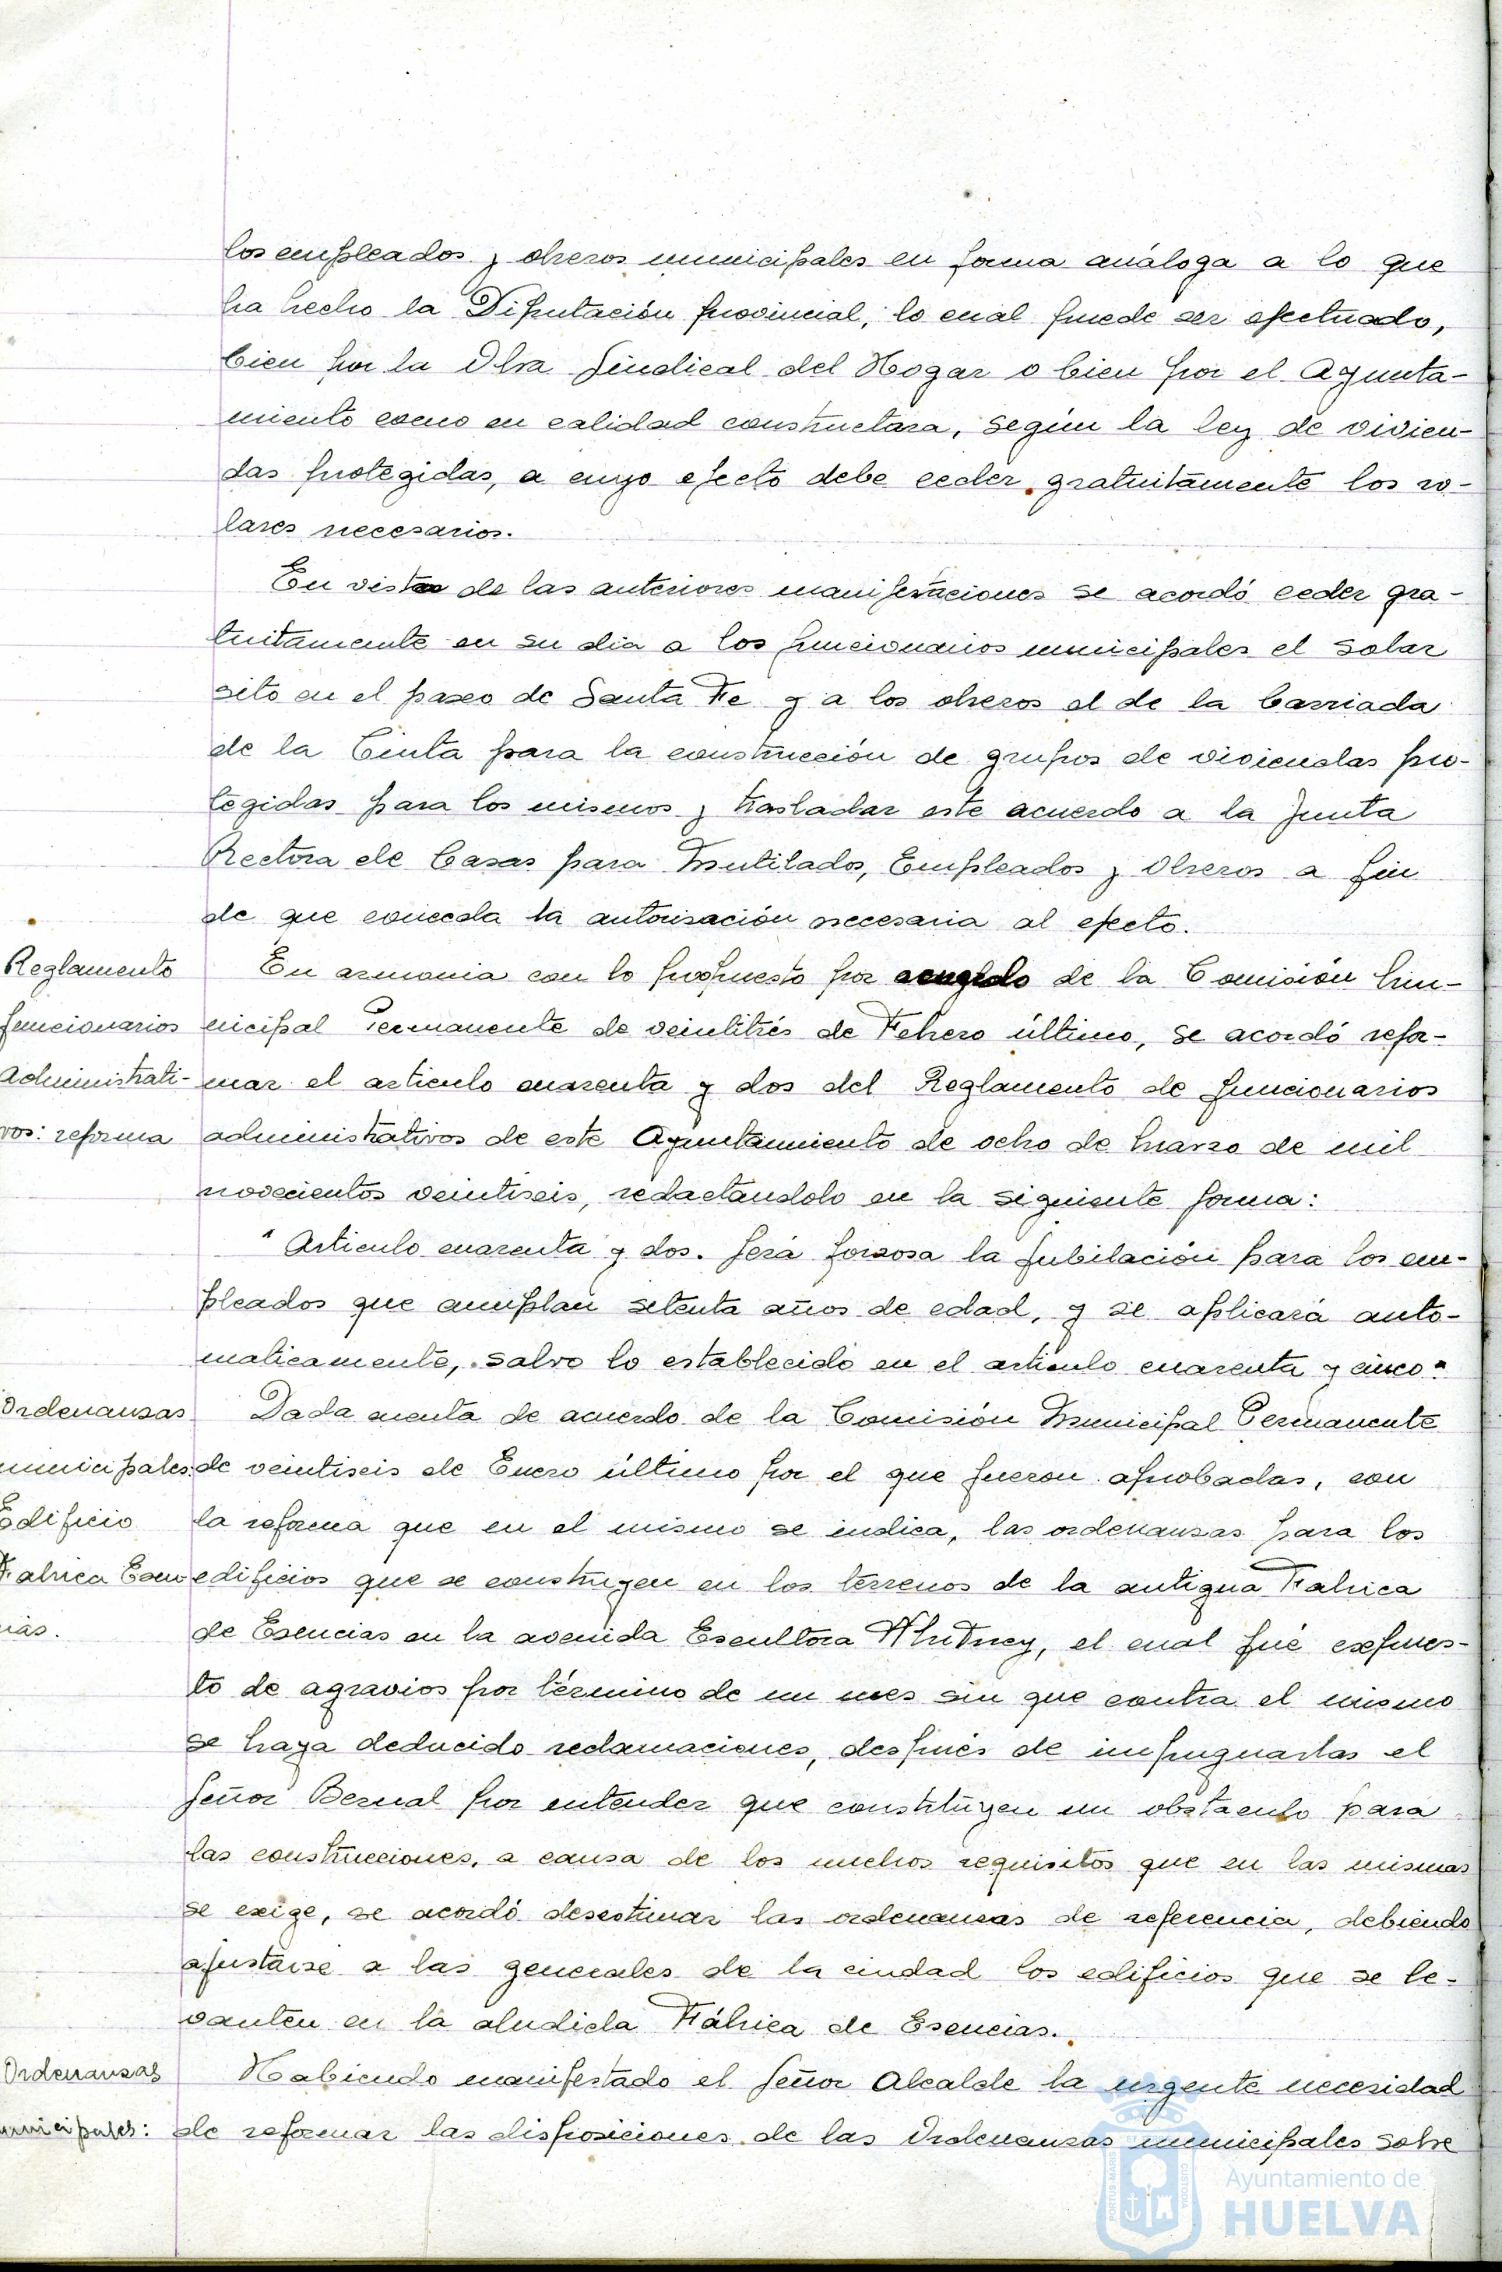 los empleados y obreros municipales en forma análoga a lo que
ha hecho la Diputación provincial, lo cual puede ser efectuado,
bien por la Obra Sindical del Hogar o bien por el Ayunta-
miento como en calidad constructora, según la ley de vivien-
das protegidas, a cuyo efecto debe ceder gratuitamente los so-
lares necesarios.
En vista de las anteriores manifestaciones se acordó ceder gra-
tuitamente en su dia a los funcionarios municipales el solar
sito en el paseo de Santa Fe y a los obreros el de la barriada
de la Cinta para la construcción de grupos de viviendas pro-
tegidas para los mismos y trasladar este acuerdo a la Junta
Rectora de Casas para Mutilados, Empleados y Obreros a fin
de que conceda la autorisación necesaria al efecto.
Reglamento
funcionarios
administrati-
vos: reforma
En armonia con lo propuesto por acuerdo de la Comisión Mu-
nicipal Permanente de veintitrés de Febrero último, se acordó refor-
mar el articulo cuarenta y dos del Reglamento de funcionarios
administrativos de este Ayuntamiento de ocho de Marzo de mil
novecientos veintiseis, redactandolo en la siguiente forma:
"Articulo cuarenta y dos. Será forzosa la jubilación para los em-
pleados que cumplan setenta años de edad, y se aplicará auto-
maticamente, salvo lo establecido en el articulo cuarenta y cinco"
Ordenansas
municipales
Edificio
Fabrica Esen-
cias.
Dada cuenta de acuerdo de la Comisión Municipal Permanente
de veintiseis de Enero último por el que fueron aprobadas, con
la reforma que en el mismo se indica, las ordenansas para los
edificios que se construyen en los terrenos de la antigua Fabrica
de Esencias en la avenida Escultora Whitney, el cual fué expues-
to de agravios por término de un mes sin que contra el mismo
se haya deducido reclamaciones, después de impugnarlas el
Señor Bernal por entender que constituyen un obstaculo para
las construcciones, a causa de los muchos requisitos que en las mismas
se exige, se acordó desestimar las ordenansas de referencia, debiendo
ajustarse a las generales de la ciudad los edificios que se le-
vanten en la aludida Fábrica de Esencias.
Ordenansas
municipales:
Habiendo manifestado el Señor Alcalde la urgente necesidad
de reformar las disposiciones de las Ordenansas municipales sobre
PORTUS MARIS
CUSTODIA
Ayuntamiento de
HUELVA